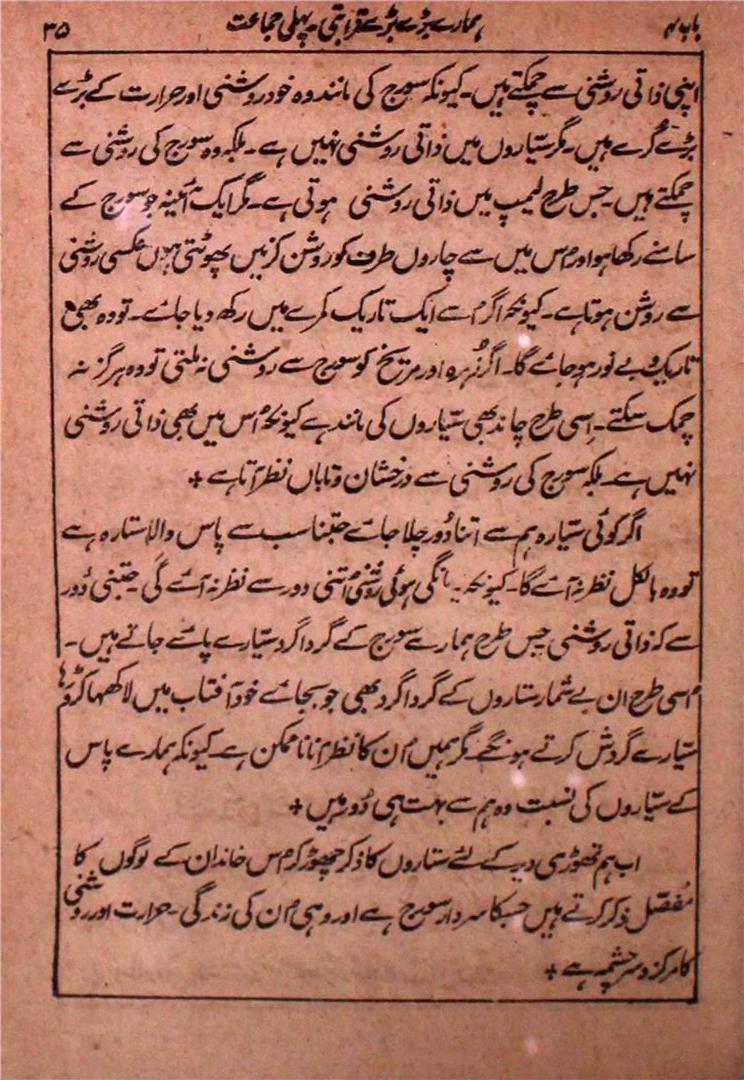 باب ۴ ہمارے بڑے بڑے قرابتی۔ پہلی جماعت ۳۵
اپنی ذاتی روشنی سے چمکتے ہیں۔ کیونکہ سورج کی مانند وہ خود روشنی اور حرارت کے بڑے
بڑے کُرے ہیں۔ مگر سیّاروں میں ذاتی روشنی نہیں ہے۔ بلکہ وہ سورج کی روشنی سے
چمکتے ہیں۔ جس طرح لیمپ میں ذاتی روشنی ہوتی ہے۔ مگر ایک آئینہ جو سورج کے
سامنے رکھا ہو اور اس میں سے چاروں طرف کو روشن کرنیں پھوٹتی ہوں عکسی روشنی
سے روشن ہوتا ہے۔ کیونکہ اگر اسے ایک تاریک کمرے میں رکھ دیا جائے۔ تو وہ بھی
تاریک و بے نور ہو جائے گا۔ اگر زُہرہ اور مریخ کو سورج سے روشنی نہ ملتی تو وہ ہرگز نہ
چمک سکتے۔ اِسی طرح چاند بھی سیّاروں کی مانند ہے کیونکہ اس میں بھی ذاتی روشنی
نہیں ہے۔ بلکہ سورج کی روشنی سے درخشان و تاباں نظر آتا ہے +
اگر کوئی سیّارہ ہم سے اتنا دُور چلا جائے جتنا سب سے پاس والا ستارہ ہے
تو وہ بالکل نظر نہ آئے گا۔ کیونکہ مانگی ہوئی روشنی اُتنی دور سے نظر نہ آئے گی۔ جتنی دُور
سے کہ ذاتی روشنی جس طرح ہمارے سورج کے گردا گرد سیّارے پائے جاتے ہیں۔
اسی طرح ان بے شمار ستاروں کے گردا گرد بھی جو بجائے خود آفتاب ہیں لاکھہا کروڑہا
سیّارے گردش کرتے ہونگے۔ مگر ہمیں اُن کا نظر آنا ناممکن ہے۔ کیونکہ ہمارے پاس
کے سیّاروں کی نسبت وہ ہم سے بہت ہی دُور ہیں +
اب ہم تھوڑی دیر کے لئے ستاروں کا ذکر چھوڑ کر اس خاندان کے لوگوں کا
مُفصّل ذکر کرتے ہیں جسکا سردار سورج ہے اور وہی ان کی زندگی۔ حرارت اور روشنی
کا مرکز و سرچشمہ ہے +